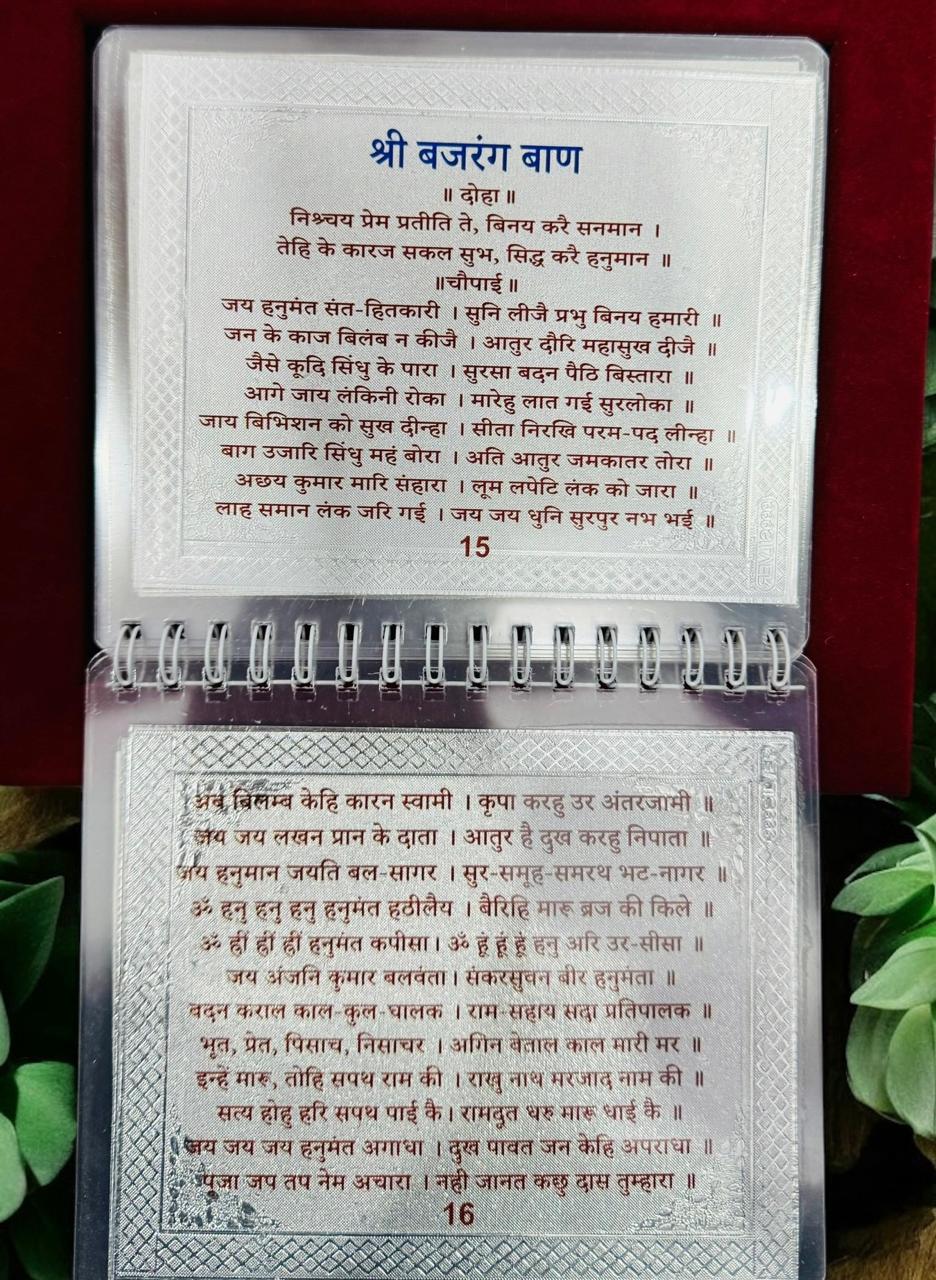 श्री बजरंग बाण
॥ दोहा ॥
निश्चय प्रेम प्रतीति ते, बिनय करै सनमान ।
तेहि के कारज सकल सुभ, सिद्ध करै हनुमान ॥
॥चौपाई॥
जय हनुमंत संत-हितकारी । सुनि लीजै प्रभु बिनय हमारी ॥
जन के काज बिलंब न कीजै । आतुर दौरि महासुख दीजै ॥
जैसे कूदि सिंधु के पारा । सुरसा बदन पैठि बिस्तारा ॥
आगे जाय लंकिनी रोका । मारेहु लात गई सुरलोका ॥
जाय बिभिशन को सुख दीन्हा । सीता निरखि परम-पद लीन्हा ॥
बाग उजारि सिंधु महं बोरा । अति आतुर जमकातर तोरा ॥
अछय कुमार मारि संहारा । लूम लपेटि लंक को जारा ॥
लाह समान लंक जरि गई । जय जय धुनि सुरपुर नभ भई ॥
15
अब बिलम्ब केहि कारन स्वामी । कृपा करहु उर अंतरजामी ॥
जय जय लखन प्रान के दाता । आतुर है दुख करहु निपाता ॥
जय हनुमान जयति बल-सागर । सुर-समूह-समरथ भट-नागर ॥
ॐ हनु हनु हनु हनुमंत हठीलैय । बैरिहि मारू ब्रज की किले ॥
ॐ ह्रीं ह्रीं ह्रीं हनुमंत कपीसा। ॐ हूं हूं हूं हनु अरि उर-सीसा ॥
जय अंजनि कुमार बलवंता। संकरसुवन बीर हनुमंता ॥
बदन कराल काल-कुल-घालक । राम-सहाय सदा प्रतिपालक ॥
भूत, प्रेत, पिसाच, निसाचर । अगिन बेताल काल मारी मर ॥
इन्हें मारू, तोहि सपथ राम की । राखु नाथ मरजाद नाम की ॥
सत्य होहु हरि सपथ पाई कै। रामदूत धरु मारू धाई कै ॥
जय जय जय हनुमंत अगाधा । दुख पावत जन केहि अपराधा ॥
पूजा जप तप नेम अचारा । नही जानत कछु दास तुम्हारा ॥
16